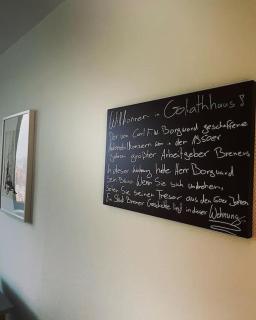 Willkommen im Goliathhaus!
Der von Carl F.W. Borgward geschaffene
Automobilkonzern war in den 1950er
Jahren größter Arbeitgeber Bremens
In dieser Wohnung hatte Herr Borgward
sein Büro. Wenn Sie sich umdrehen,
sehen Sie seinen Tresor aus den 50er Jahren
Ein Stück Bremer Geschichte liegt in dieser Wohnung